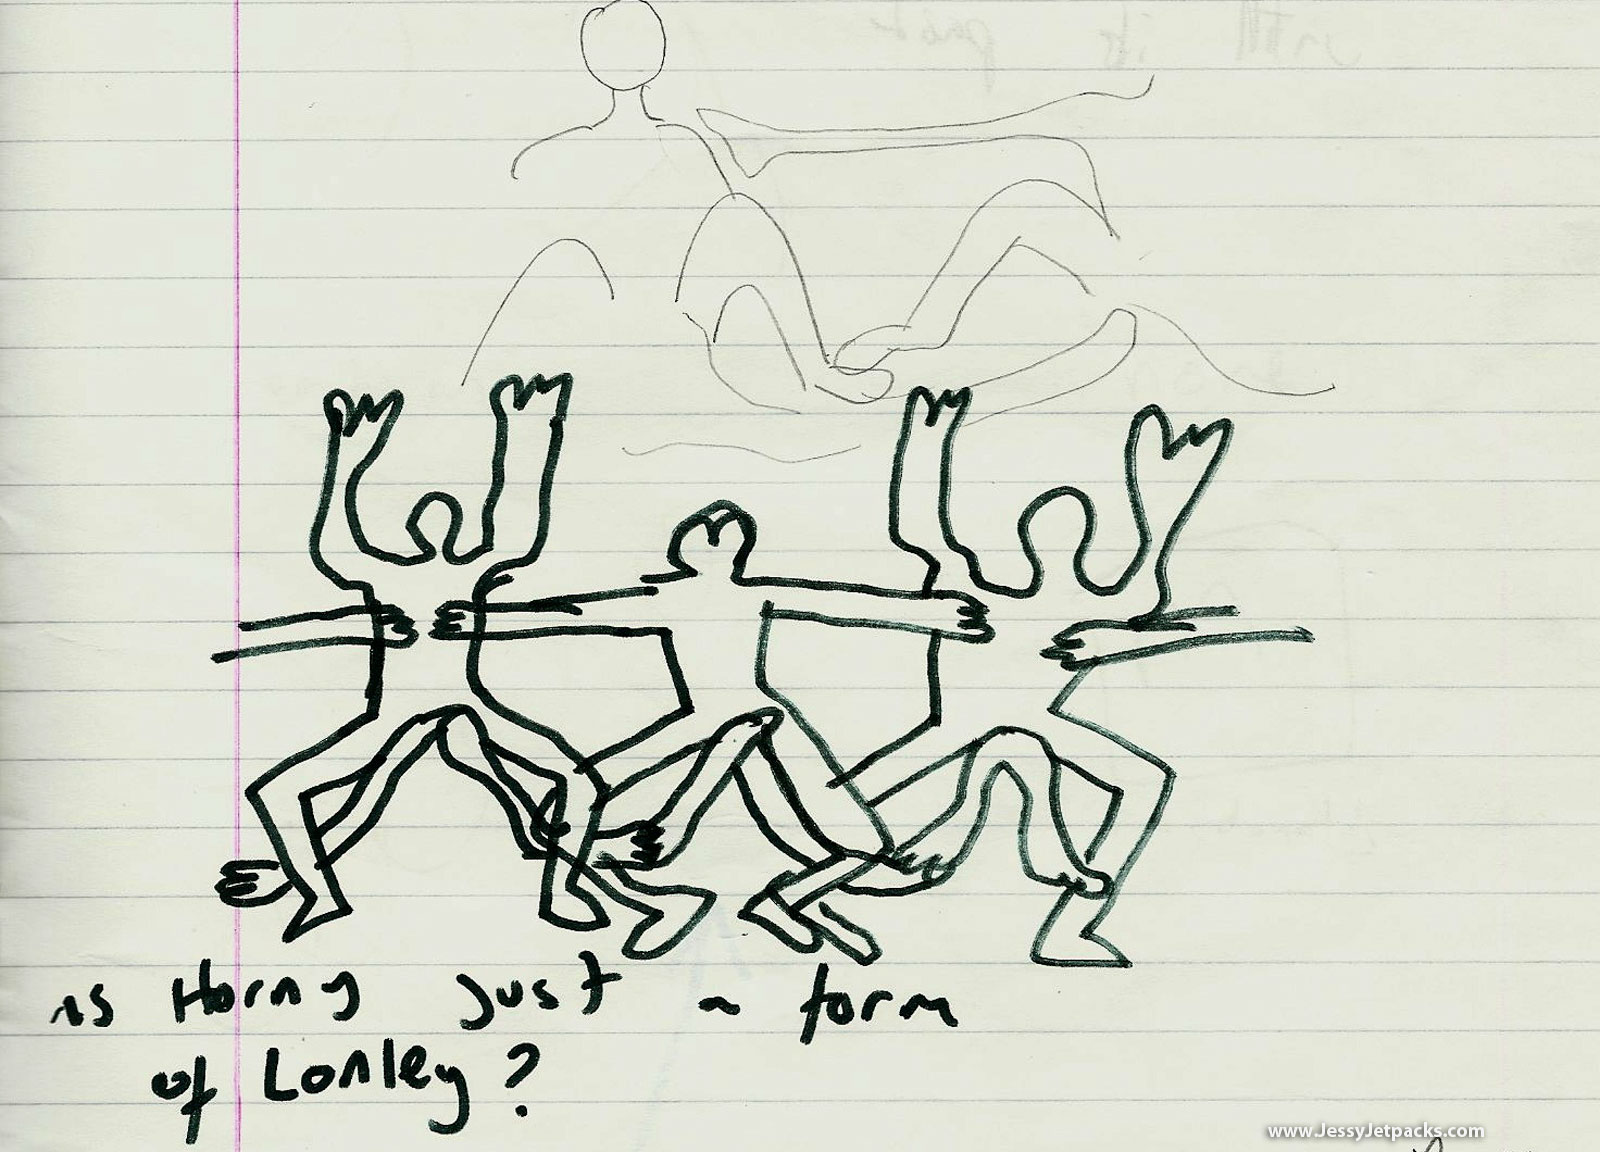 is Horny just a form
of Lonley?
www.JessyJetpacks.com